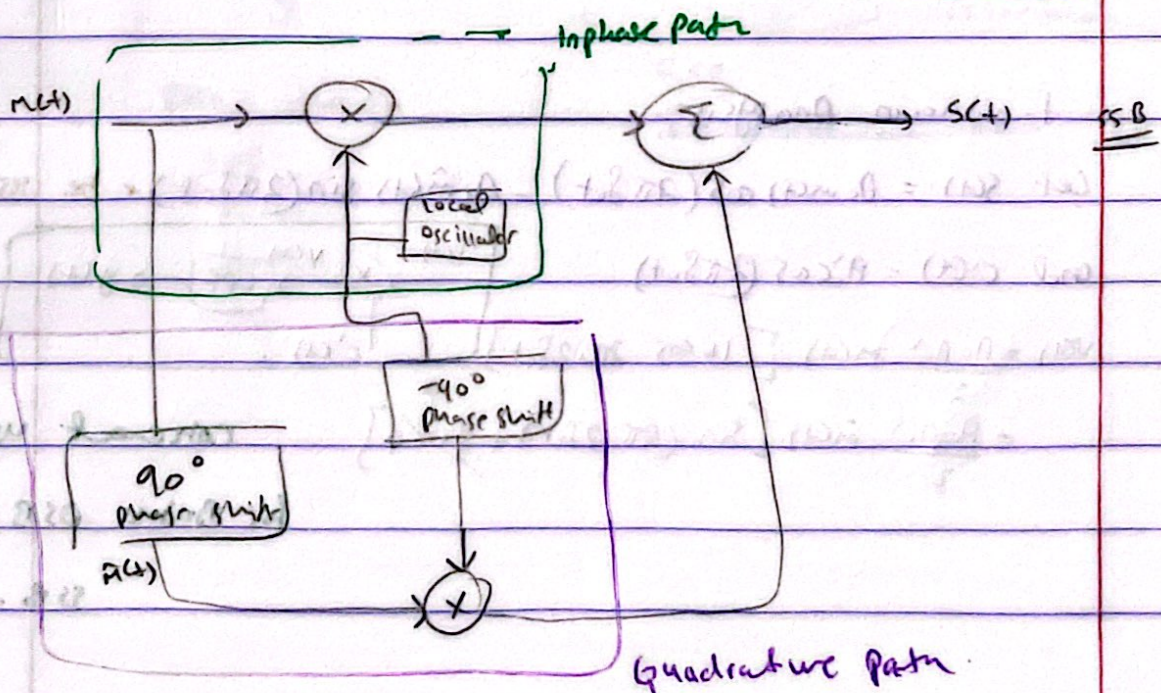 Inphase path
m(t)
×
Σ
S(t)
SSB
Local
oscillator
-90°
phase shift
90°
phase shift
m̂(t)
×
Quadrature path